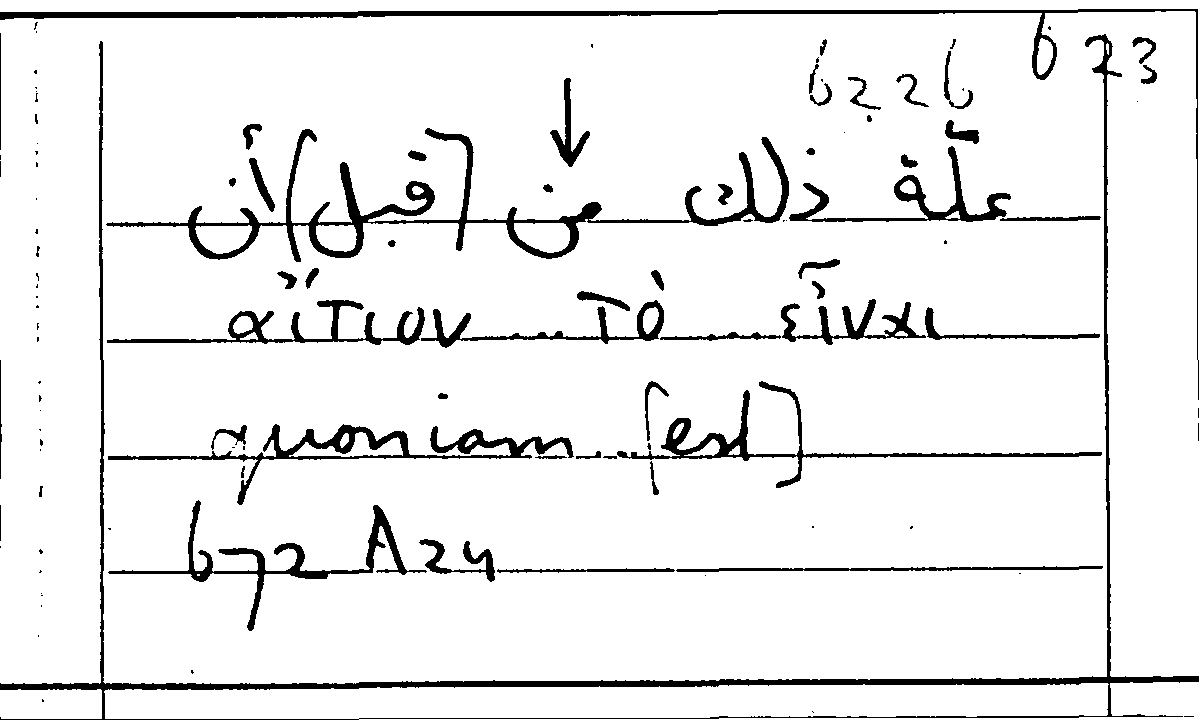 6226 673
علّة ذلك من [قبل] أن
αἴτιον ... τὸ ... εἶναι
quoniam ... [est]
672 A24